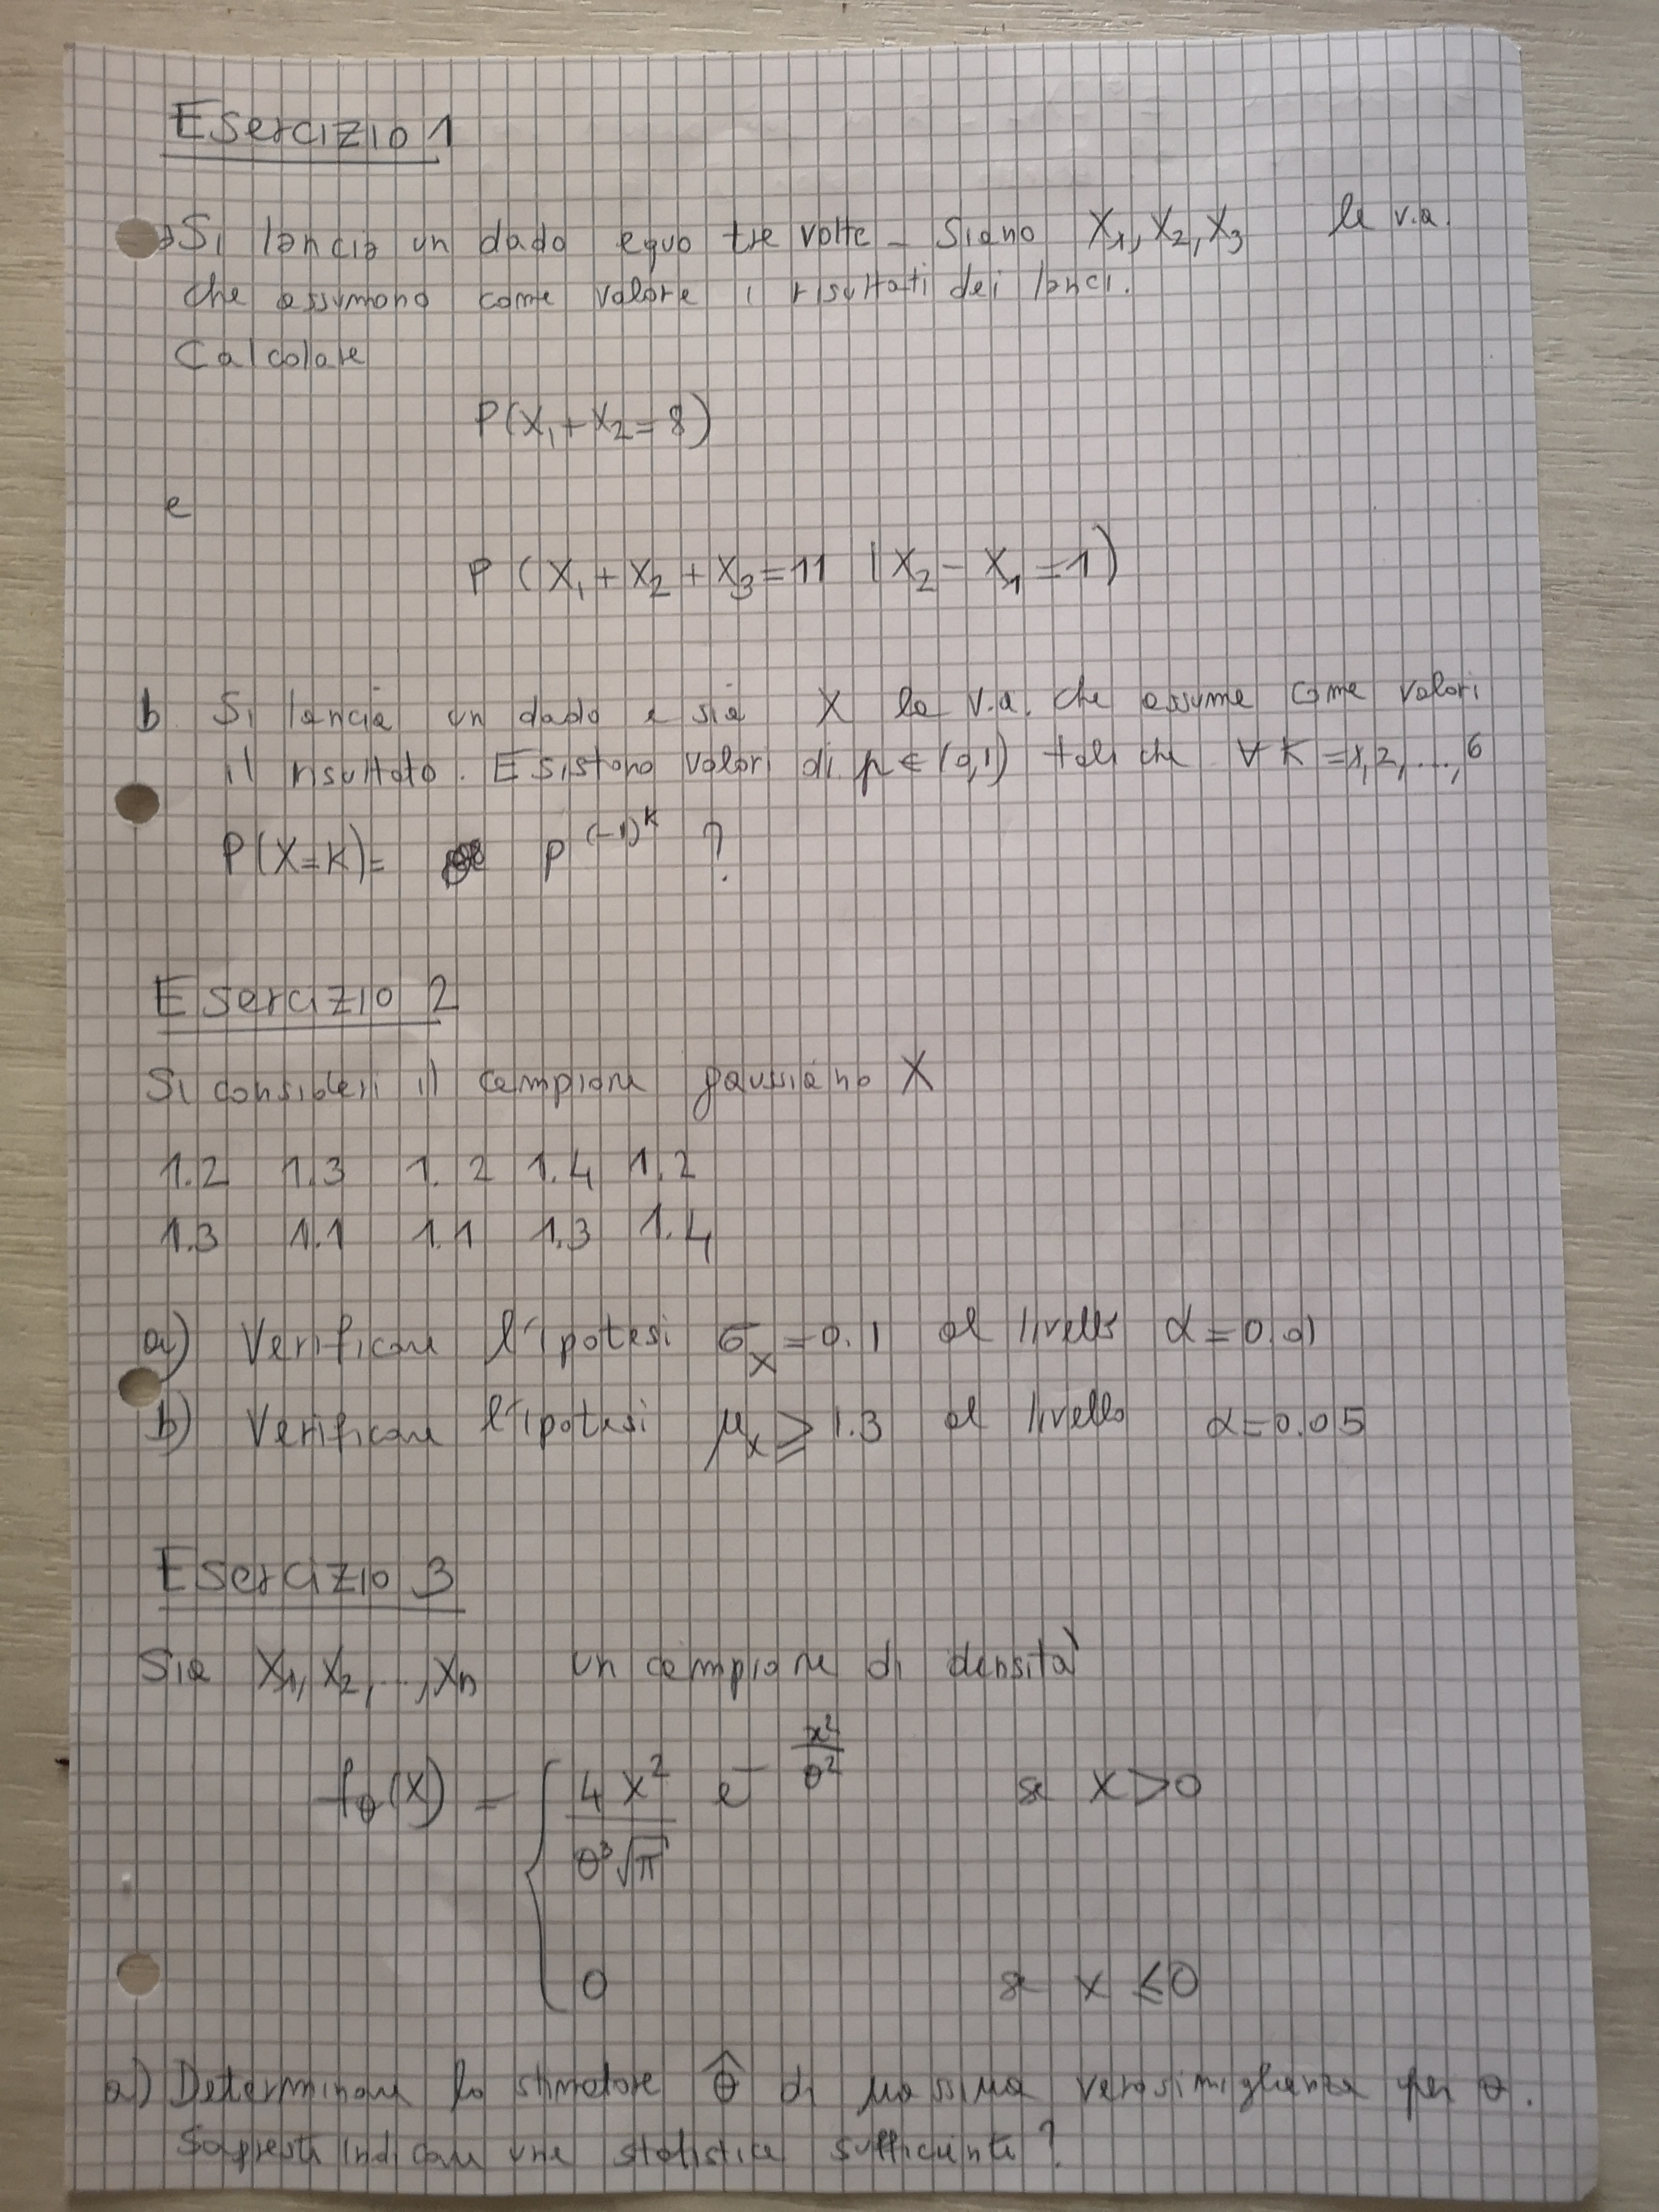 Esercizio 1
Si lancia un dado equo tre volte. Siano X₁, X₂, X₃ le v.a.
che assumono come valore i risultati dei lanci.
Calcolare
P(X₁+X₂=8)
e
P(X₁+X₂+X₃=11 | X₂-X₁=1)
b Si lancia un dado e sia X la v.a. che assume come valori
il risultato. Esistono valori di p∈(0,1) tali che ∀ K=1,2,...,6
P(X=K)= p^(-1)^K ?
Esercizio 2
Si consideri il campione gaussiano X
1.2 1.3 1.2 1.4 1.2
1.3 1.1 1.1 1.3 1.4
a) Verificare l'ipotesi σ_X=0.1 al livello α=0.01
b) Verificare l'ipotesi μ_X ≥ 1.3 al livello α=0.05
Esercizio 3
Sia X₁, X₂, ..., Xn un campione di densità
f_θ(x) = { 4x²/(θ³√π) e^(-x²/θ²) se x>0
0 se x ≤0
a) Determinare lo stimatore θ̂ di massima verosimiglianza per θ.
Sapresti indicare una statistica sufficiente?